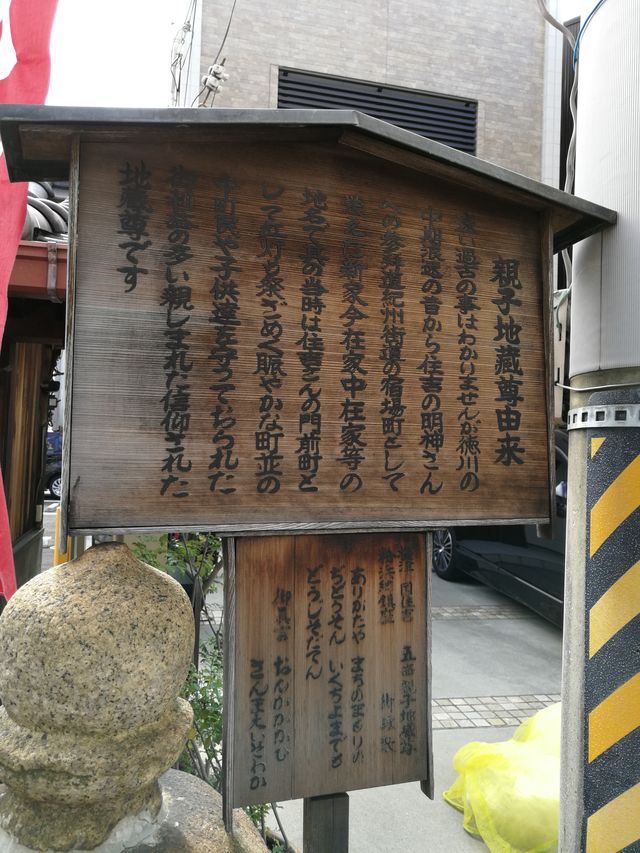 親子地蔵尊由来
遠い過去の事はわかりませんが徳川の
中期浪速の昔から住吉の明神さん
への参拝道紀州街道の宿場町として
新家今在家中在家等の
地名で其の当時は住吉さんの門前町と
して紅灯も祭ざめく賑やかな町並の
中町民や子供達を守っておられた
御利益の多い親しまれた信仰された
地蔵尊です
五西親子地蔵尊
御詠歌
ありがたや まちのまもりの
ぢぞうそん いくちよまでも
どうじそだてん
御真言 おんかかかび
さんまえいそわか